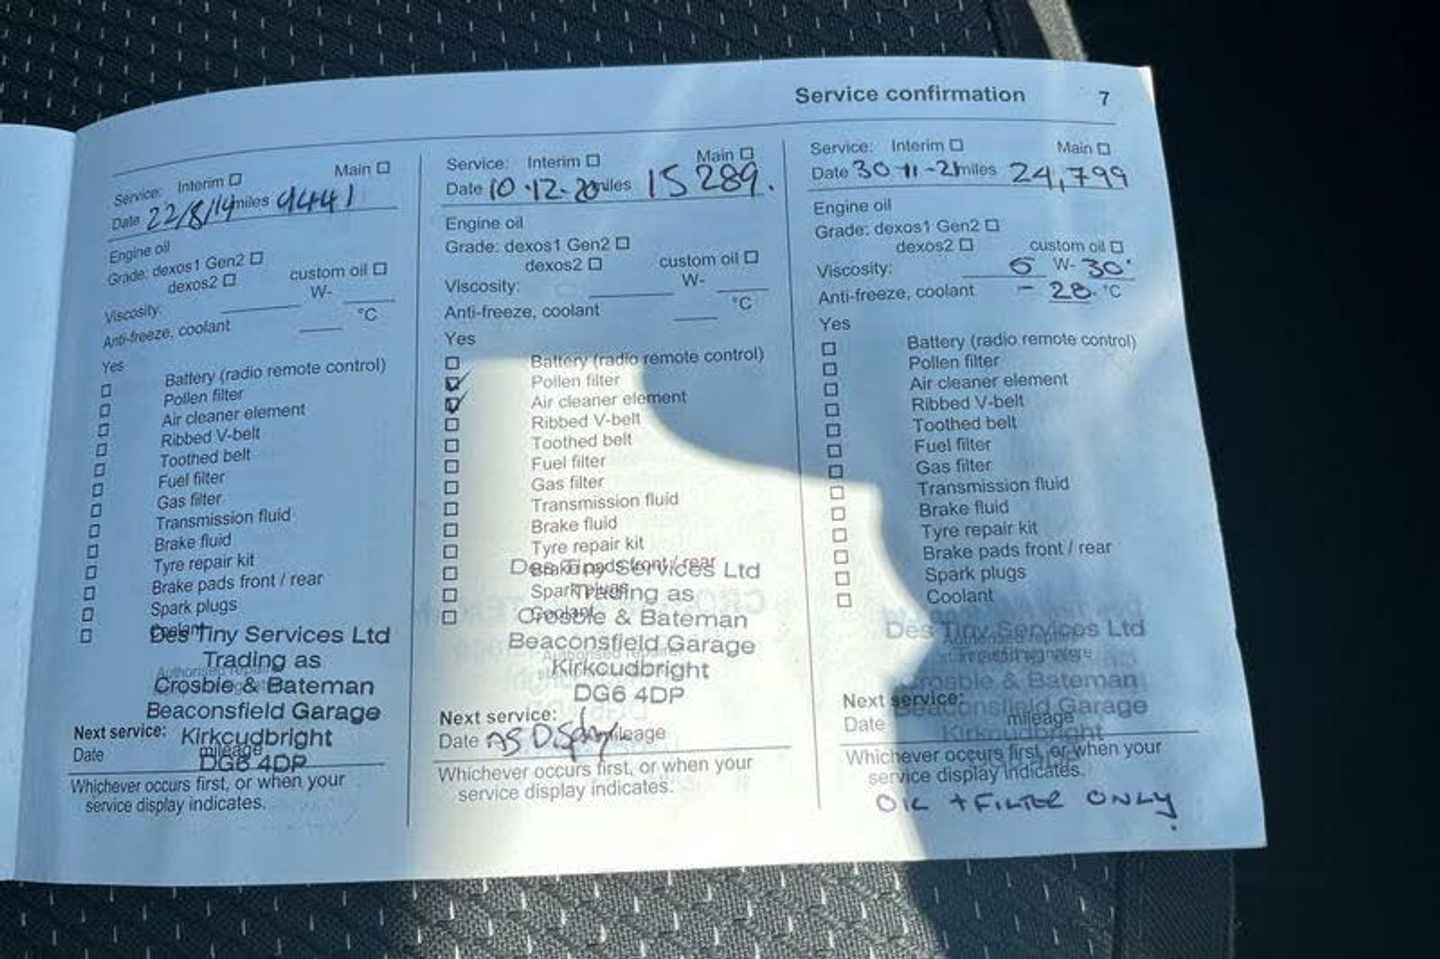 Service confirmation 7
Service: Interim Main
Date 22/8/19 miles 9441
Engine oil
Grade: dexos1 Gen2
dexos2 custom oil
Viscosity: W-
Anti-freeze, coolant °C
Yes
Battery (radio remote control)
Pollen filter
Air cleaner element
Ribbed V-belt
Toothed belt
Fuel filter
Gas filter
Transmission fluid
Brake fluid
Tyre repair kit
Brake pads front / rear
Spark plugs
Coolant
Des Tiny Services Ltd
Trading as
Authorised repairer
Crosbie & Bateman
Beaconsfield Garage
Next service: Kirkcudbright
Date mileage
DG6 4DP
Whichever occurs first, or when your
service display indicates.
Service: Interim Main
Date 10.12-20 miles 15289.
Engine oil
Grade: dexos1 Gen2
dexos2 custom oil
Viscosity: W-
Anti-freeze, coolant °C
Yes
Battery (radio remote control)
Pollen filter
Air cleaner element
Ribbed V-belt
Toothed belt
Fuel filter
Gas filter
Transmission fluid
Brake fluid
Tyre repair kit
Brake pads front / rear
Des Tiny Services Ltd
Spark plugs
Trading as
Coolant
Crosbie & Bateman
Beaconsfield Garage
Kirkcudbright
DG6 4DP
Next service:
Date As Display mileage
Whichever occurs first, or when your
service display indicates.
Service: Interim Main
Date 30-11-21 miles 24,799
Engine oil
Grade: dexos1 Gen2
dexos2 custom oil
Viscosity: 5 W- 30
Anti-freeze, coolant - 28 °C
Yes
Battery (radio remote control)
Pollen filter
Air cleaner element
Ribbed V-belt
Toothed belt
Fuel filter
Gas filter
Transmission fluid
Brake fluid
Tyre repair kit
Brake pads front / rear
Spark plugs
Coolant
Des Tiny Services Ltd
Crosbie & Bateman
Next service:
Beaconsfield Garage
Date mileage
Kirkcudbright
Whichever occurs first, or when your
service display indicates.
OIL + FILTER ONLY.